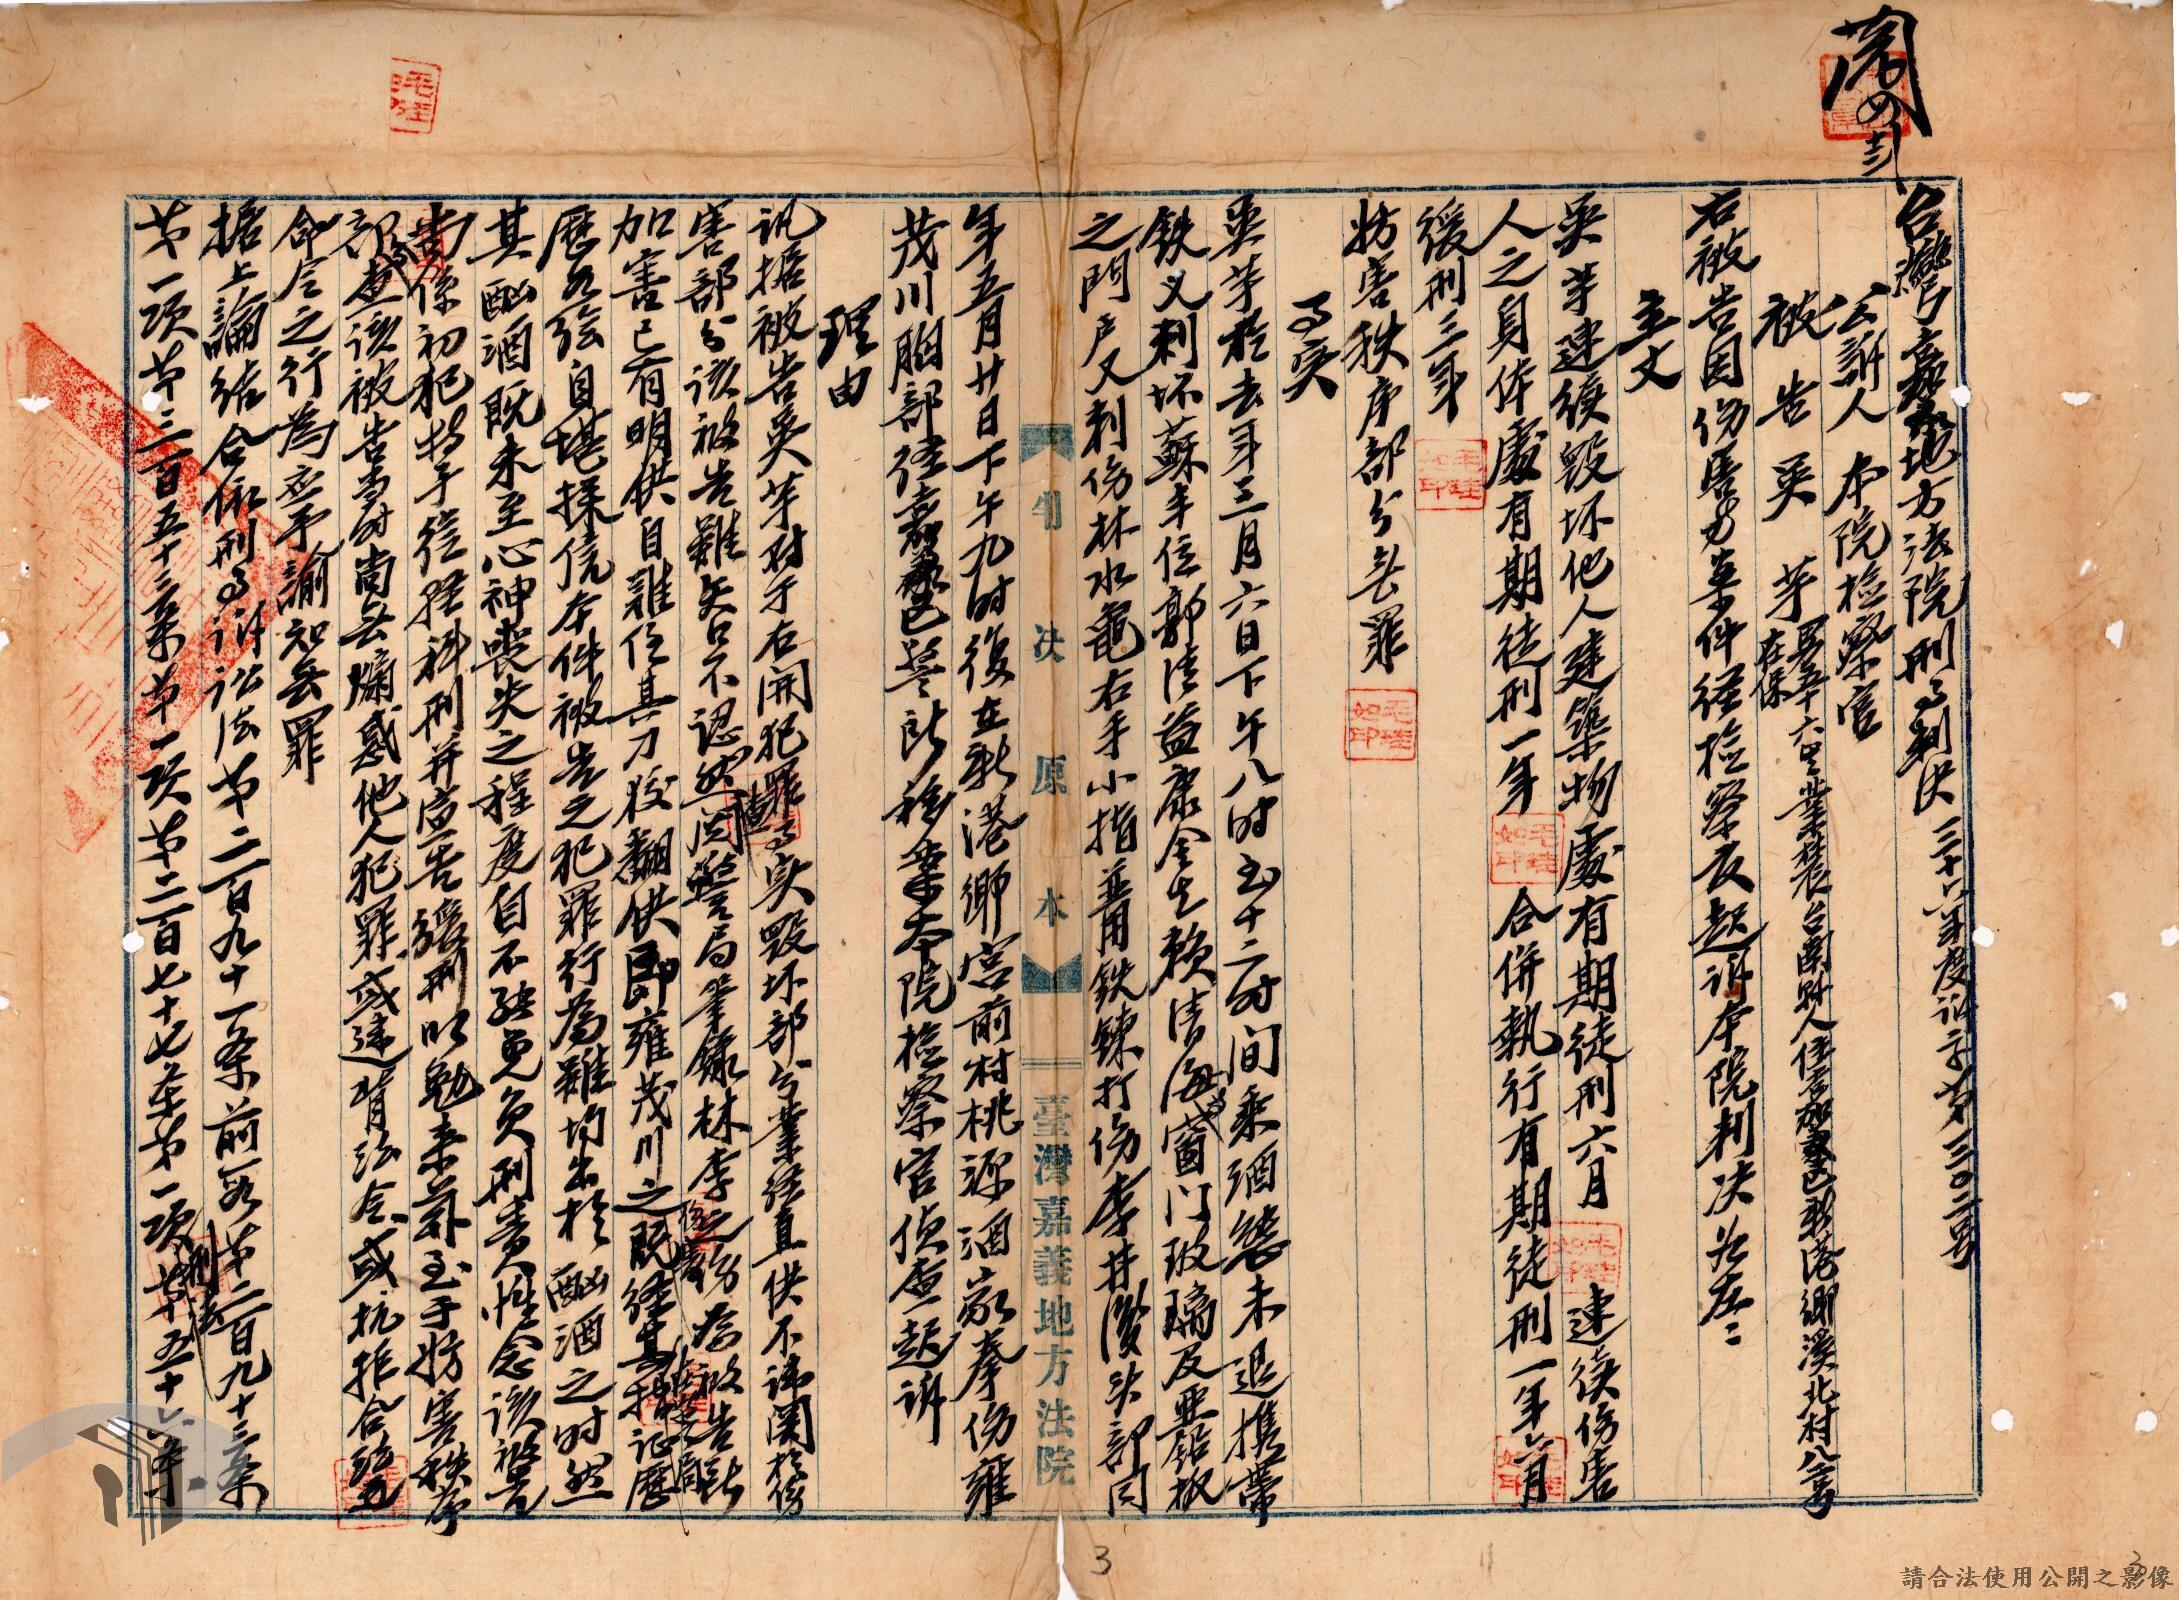 台灣嘉義地方法院刑事判決 三十六年度訴字第三〇二号
公訴人 本院檢察官
被告 吳 芋 男五十六岁業農台南縣人住嘉義區新港鄉溪北村八号
在保
右被告因伤害等案件經檢察官起訴本院判决如左:
主文
吳芋連續毀坏他人建築物處有期徒刑六月 連續伤害
人之身体處有期徒刑一年 合併執行有期徒刑一年六月
緩刑三年
妨害秩序部分無罪
事实
吳芋於去年三月六日下午八时至十二时间乘酒態未退携帶
铁叉刺坏蘇年位郭清益康金生赖清海等窗门玻璃及亜鉛板
之門戶又刺伤林水龜右手小指並用铁鍊打伤李井後头部同
年五月廿日下午九时復在新港鄉宮前村桃源酒家拳伤雍
茂川胸部經嘉義區警所移案本院檢察官偵查起訴
理由
訊据被告吳芋对于右開犯罪事实毀坏部分業經直供不諱関於伤
害部分该被告雖矢口不認然查閱警局筆錄林李之伤為被告所
加害已有明供自難任其刁狡翻供即雍茂川之既經其指证歷
歷如绘自堪採信本件被告之犯罪行為雖均出於酗酒之时然
其酗酒既未至心神喪失之程度自不能免负刑責惟念该被告
尚係初犯特予從輕科刑并宣告緩刑以勉来茲至于妨害秩序
部分查该被告当时尚無煽惑他人犯罪或違背法令或抗拒合法
命令之行為应予諭知無罪
据上論結合依刑事訴讼法第二百九十一条前段第二百九十三条
第一项刑法第三百五十三条第一项第二百七十七条第一项第五十六条
判决原本
臺灣嘉義地方法院
3
請合法使用公開之影像